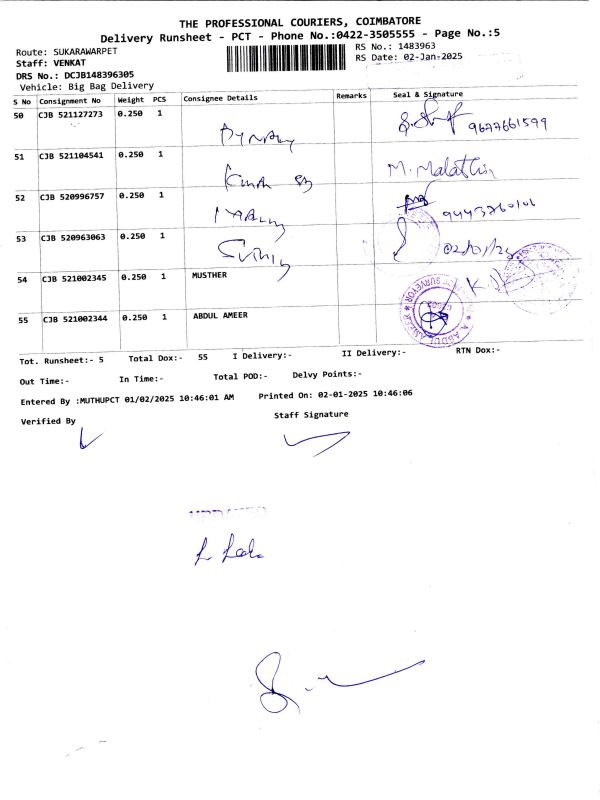 THE PROFESSIONAL COURIERS, COIMBATORE
Delivery Runsheet - PCT - Phone No.:0422-3505555 - Page No.:5
Route: SUKARAWARPET
RS No.: 1483963
Staff: VENKAT
RS Date: 02-Jan-2025
DRS No.: DCJB148396305
Vehicle: Big Bag Delivery
S No Consignment No Weight PCS Consignee Details Remarks Seal & Signature
50 CJB 521127273 0.250 1
9677661599
51 CJB 521104541 0.250 1 M. Malathi
52 CJB 520996757 0.250 1
53 CJB 520963063 0.250 1
54 CJB 521002345 0.250 1 MUSTHER
55 CJB 521002344 0.250 1 ABDUL AMEER
SURVEYOR
Tot. Runsheet:- 5 Total Dox:- 55 I Delivery:- II Delivery:- RTN Dox:-
Out Time:- In Time:- Total POD:- Delvy Points:-
Entered By :MUTHUPCT 01/02/2025 10:46:01 AM Printed On: 02-01-2025 10:46:06
Verified By Staff Signature